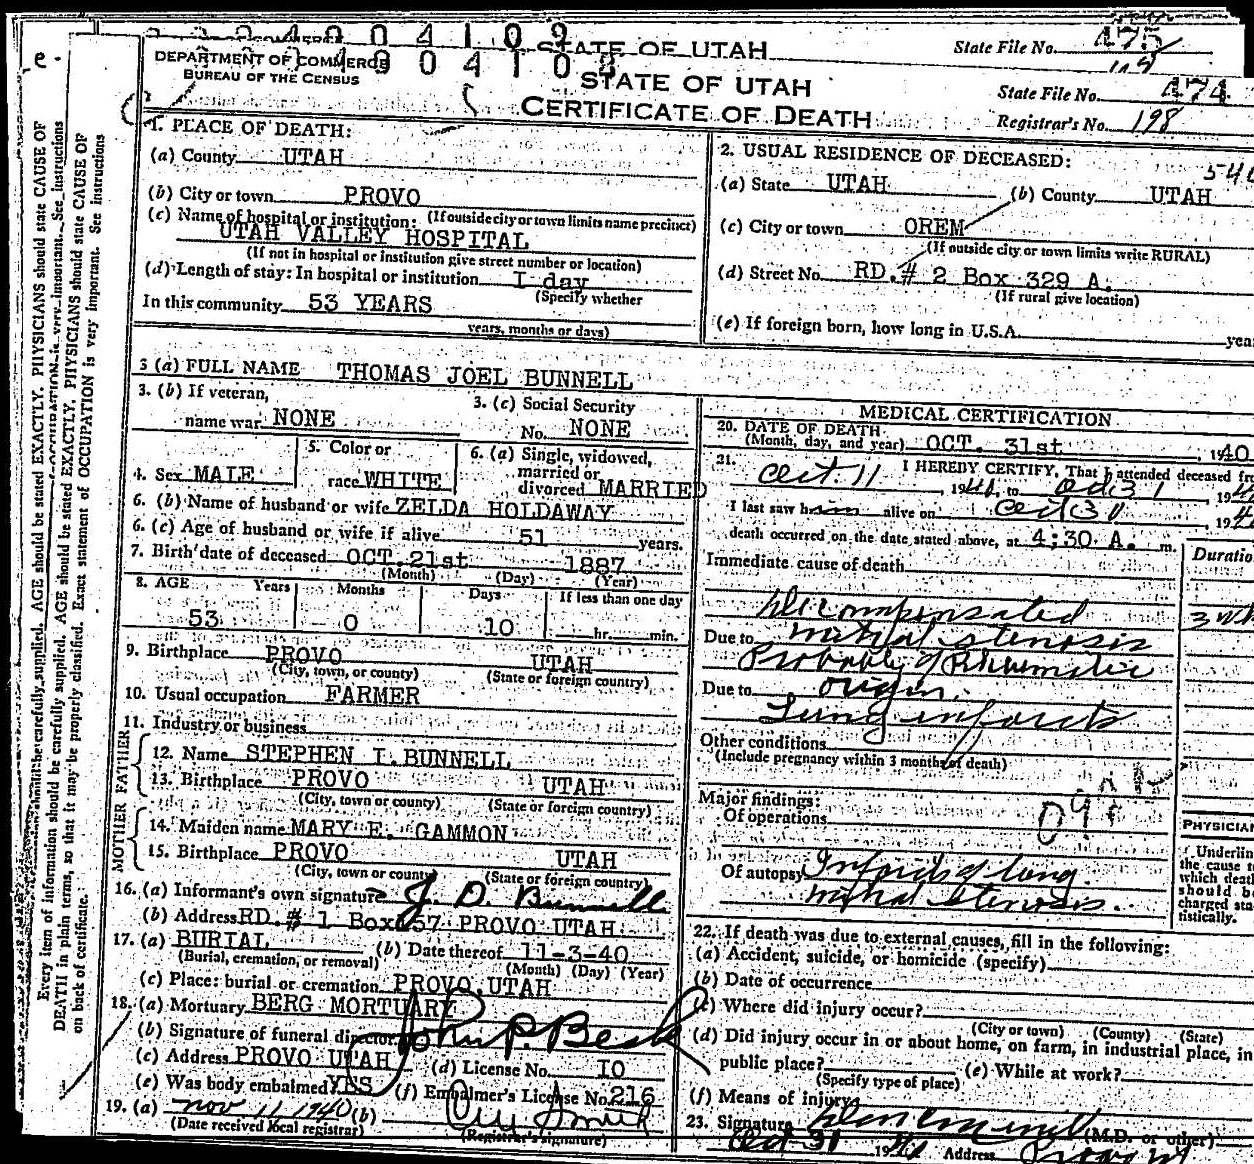 STATE OF UTAH
State File No. 475
DEPARTMENT OF COMMERCE
BUREAU OF THE CENSUS
STATE OF UTAH
CERTIFICATE OF DEATH
State File No. 474
Registrar's No. 198
1. PLACE OF DEATH:
(a) County UTAH
(b) City or town PROVO
(c) Name of hospital or institution: (If outside city or town limits name precinct)
UTAH VALLEY HOSPITAL
(If not in hospital or institution give street number or location)
(d) Length of stay: In hospital or institution I day
(Specify whether
In this community 53 YEARS
years, months or days)
2. USUAL RESIDENCE OF DECEASED:
(a) State UTAH (b) County UTAH
(c) City or town OREM
(If outside city or town limits write RURAL)
(d) Street No. RD.# 2 Box 329 A.
(If rural give location)
(e) If foreign born, how long in U.S.A.
3 (a) FULL NAME THOMAS JOEL BUNNELL
3. (b) If veteran,
name war NONE
3. (c) Social Security
No. NONE
4. Sex MALE
5. Color or
race WHITE
6. (a) Single, widowed,
married or
divorced MARRIED
6. (b) Name of husband or wife ZELDA HOLDAWAY
6. (c) Age of husband or wife if alive 51 years.
7. Birth date of deceased OCT.21st 1887
(Month) (Day) (Year)
8. AGE Years Months Days If less than one day
53 0 10 hr. min.
9. Birthplace PROVO UTAH
(City, town, or county) (State or foreign country)
10. Usual occupation FARMER
11. Industry or business
FATHER
12. Name STEPHEN I. BUNNELL
13. Birthplace PROVO UTAH
(City, town or county) (State or foreign country)
MOTHER
14. Maiden name MARY E. GAMMON
15. Birthplace PROVO UTAH
(City, town or county) (State or foreign country)
16. (a) Informant's own signature J. D. Bunnell
(b) Address RD.# 1 Box 57 PROVO UTAH
17. (a) BURIAL (b) Date thereof 11-3-40
(Burial, cremation, or removal) (Month) (Day) (Year)
(c) Place: burial or cremation PROVO.UTAH
18. (a) Mortuary BERG MORTUARY
(b) Signature of funeral director
(c) Address PROVO UTAH (d) License No. IO
(e) Was body embalmed YES (f) Embalmer's License No. 216
19. (a) Nov 1940 (b)
(Date received local registrar) (Registrar's signature)
MEDICAL CERTIFICATION
20. DATE OF DEATH
(Month, day, and year) OCT. 31st 1940
21. I HEREBY CERTIFY, That I attended deceased
Oct. 11, 1940, to Oct 31, 19
I last saw him alive on Oct 31, 19
death occurred on the date stated above, at 4:30 A. m.
Duration
Immediate cause of death
Decompensated
Due to mitral stenosis
Probably of Rheumatic
Due to origin.
Lung infarcts
Other conditions
(Include pregnancy within 3 months of death)
Major findings:
Of operations
Of autopsy Infarcts of lung.
mitral stenosis.
PHYSICIAN
Underline
the cause to
which death
should be
charged sta-
tistically.
22. If death was due to external causes, fill in the following:
(a) Accident, suicide, or homicide (specify)
(b) Date of occurrence
(c) Where did injury occur?
(City or town) (County) (State)
(d) Did injury occur in or about home, on farm, in industrial place, in
public place? (e) While at work?
(Specify type of place)
(f) Means of injury
23. Signature (M.D. or other)
Oct 31 1940 Address Provo
Every item of information should be carefully supplied. AGE should be stated EXACTLY. PHYSICIANS should state CAUSE OF
DEATH in plain terms, so that it may be properly classified. Exact statement of OCCUPATION is very important. See instructions
on back of certificate.